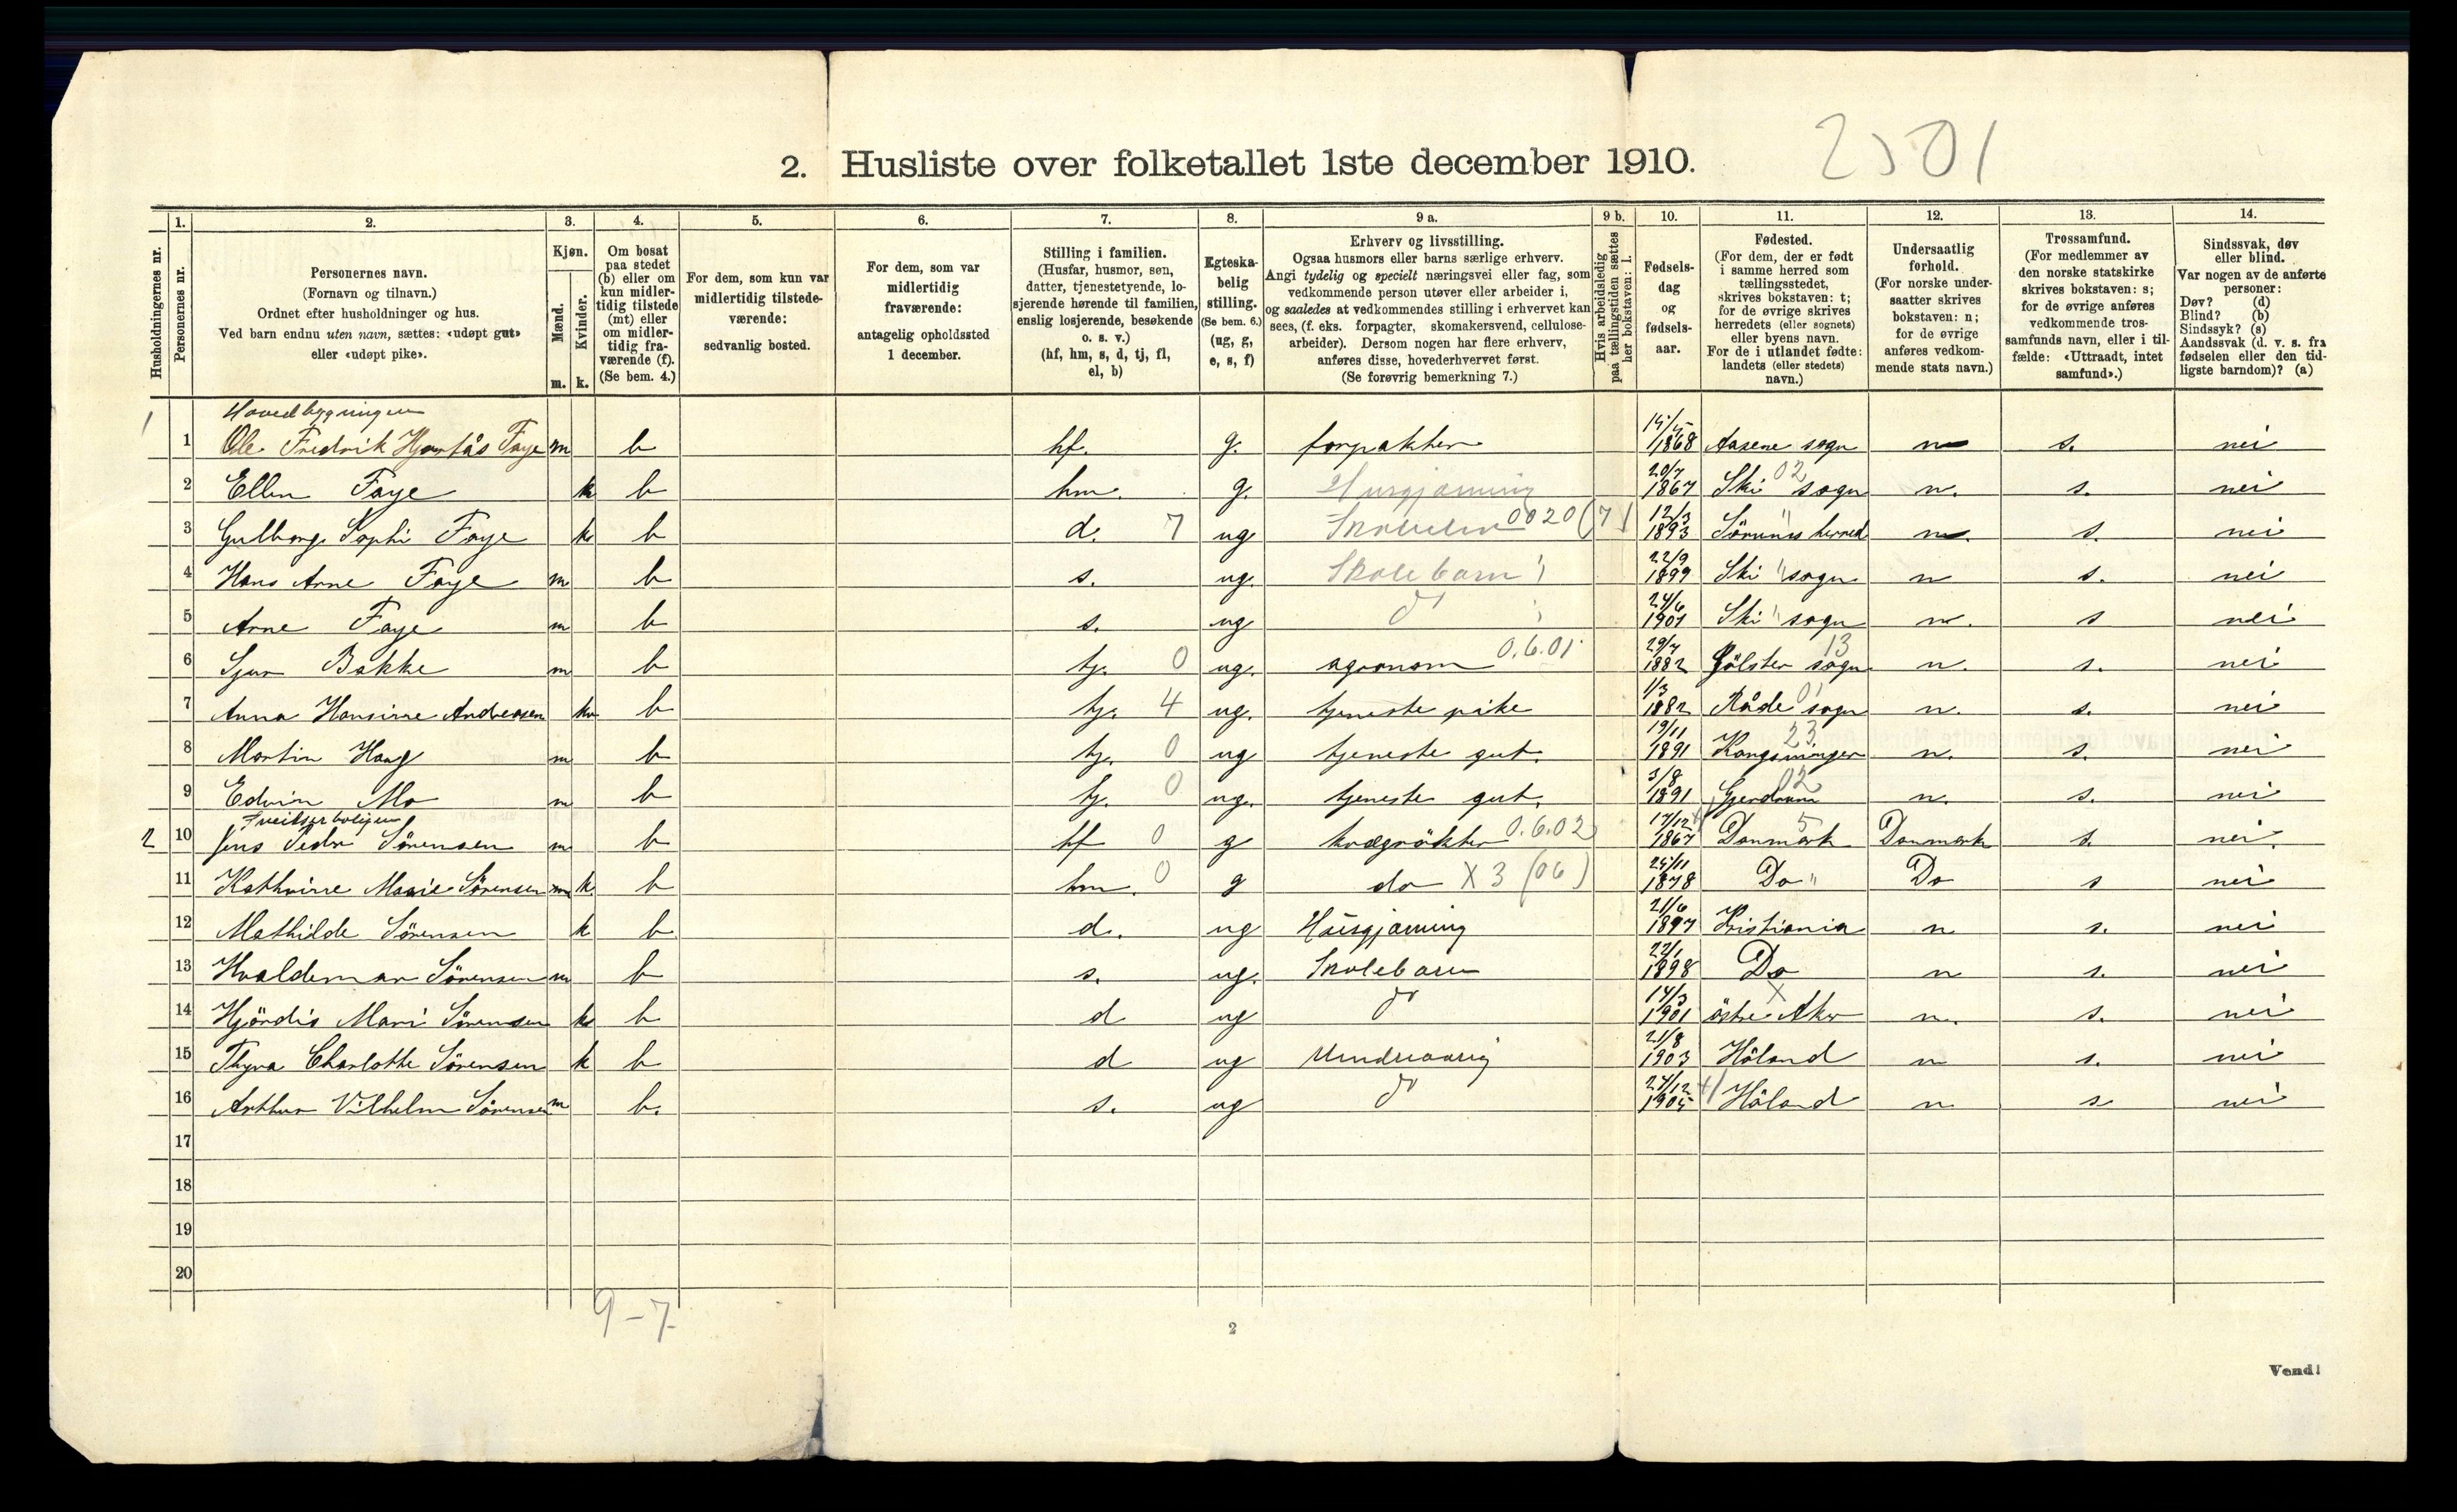 2501
2. Husliste over folketallet 1ste december 1910.
Husholdningernes nr.
1. Personernes nr.
2. Personernes navn.
(Fornavn og tilnavn.)
Ordnet efter husholdninger og hus.
Ved barn endnu uten navn, sættes: «udøpt gut»
eller «udøpt pike».
3. Kjøn.
Mænd. m.
Kvinder. k.
4. Om bosat
paa stedet
(b) eller om
kun midler-
tidig tilstede
(mt) eller
om midler-
tidig fra-
værende (f).
(Se bem. 4.)
5. For dem, som kun var
midlertidig tilstede-
værende:
sedvanlig bosted.
6. For dem, som var
midlertidig
fraværende:
antagelig opholdssted
1 december.
7. Stilling i familien.
(Husfar, husmor, søn,
datter, tjenestetyende, lo-
sjerende hørende til familien,
enslig losjerende, besøkende
o. s. v.)
(hf, hm, s, d, tj, fl,
el, b)
8. Egteska-
belig
stilling.
(Se bem. 6.)
(ug, g,
e, s, f)
9 a. Erhverv og livsstilling.
Ogsaa husmors eller barns særlige erhverv.
Angi tydelig og specielt næringsvei eller fag, som
vedkommende person utøver eller arbeider i,
og saaledes at vedkommendes stilling i erhvervet kan
sees, (f. eks. forpagter, skomakersvend, cellulose-
arbeider). Dersom nogen har flere erhverv,
anføres disse, hovederhvervet først.
(Se forøvrig bemerkning 7.)
9 b. Hvis arbeidsledig
paa tællingstiden sættes
her bokstaven: l.
10. Fødsels-
dag
og
fødsels-
aar.
11. Fødested.
(For dem, der er født
i samme herred som
tællingsstedet,
skrives bokstaven: t;
for de øvrige skrives
herredets (eller sognets)
eller byens navn.
For de i utlandet fødte:
landets (eller stedets)
navn.)
12. Undersaatlig
forhold.
(For norske under-
saatter skrives
bokstaven: n;
for de øvrige
anføres vedkom-
mende stats navn.)
13. Trossamfund.
(For medlemmer av
den norske statskirke
skrives bokstaven: s;
for de øvrige anføres
vedkommende tros-
samfunds navn, eller i til-
fælde: «Uttraadt, intet
samfund».)
14. Sindssvak, døv
eller blind.
Var nogen av de anførte
personer:
Døv? (d)
Blind? (b)
Sindssyk? (s)
Aandssvak (d. v. s. fra
fødselen eller den tid-
ligste barndom)? (a)
Hovedbygningen
1 1 Ole Fredrik Hjortås Faye m b hf. g. forpakter 1868 Aasene sogn n s. nei
2 Ellen Faye k b hm. g. Husgjærning 20/7 1867 Ski 02 sogn n. s. nei
3 Gulborg Sophi Faye k b d. 7 ug 0020 (7) 12/3 1893 herred n. s. nei
4 Hans Arne Faye m b s. ug. Skolebarn " 22/9 1899 Ski " sogn n s. nei
5 Arne Faye m b s. ug do 24/6 1901 Ski " sogn n. s nei
6 Sjur Bakke m b tj. 0 ug. agronom 0.6.01 29/7 1882 Jölster sogn 13 n. s. nei
7 Anna Hansine Andreasen k b tj. 4 ug. tjeneste pike 1/3 1882 Råde sogn 01 n. s. nei
8 Martin Haug m b tj. 0 ug tjeneste gut. 19/11 1891 Kongsvinger 23 n. s. nei
9 Edvin Mo m b tj. 0 ug. tjeneste gut. 3/8 1891 Gjerdrum 02 n. s. nei
Sveitserboligen
2 10 Jens Peder Sörensen m b hf 0 g kvægrökter 0.6.02 17/12 1867 Danmark 5 Danmark s. nei.
11 Kathrine Marie Sörensen k b hm. 0 g do X 3 (06) 25/11 1878 Do " Do s nei
12 Mathilde Sörensen k b d. ug Husgjærning 21/6 1897 Kristiania n s. nei
13 Hvaldemar Sörensen m b s. ug. Skolebarn 22/1 1898 Do n s. nei
14 Hjördis Mari Sörensen k b d ug do 14/3 1901 östre Aker X n. s. nei
15 Thyra Charlotte Sörensen k b d ug Mindreaarig 21/8 1903 Höland n s. nei
16 Arthur Vilhelm Sörensen m b. s. ug do 24/12 1905 Höland n s nei
17
18
19
20
9-7
2
Vend!